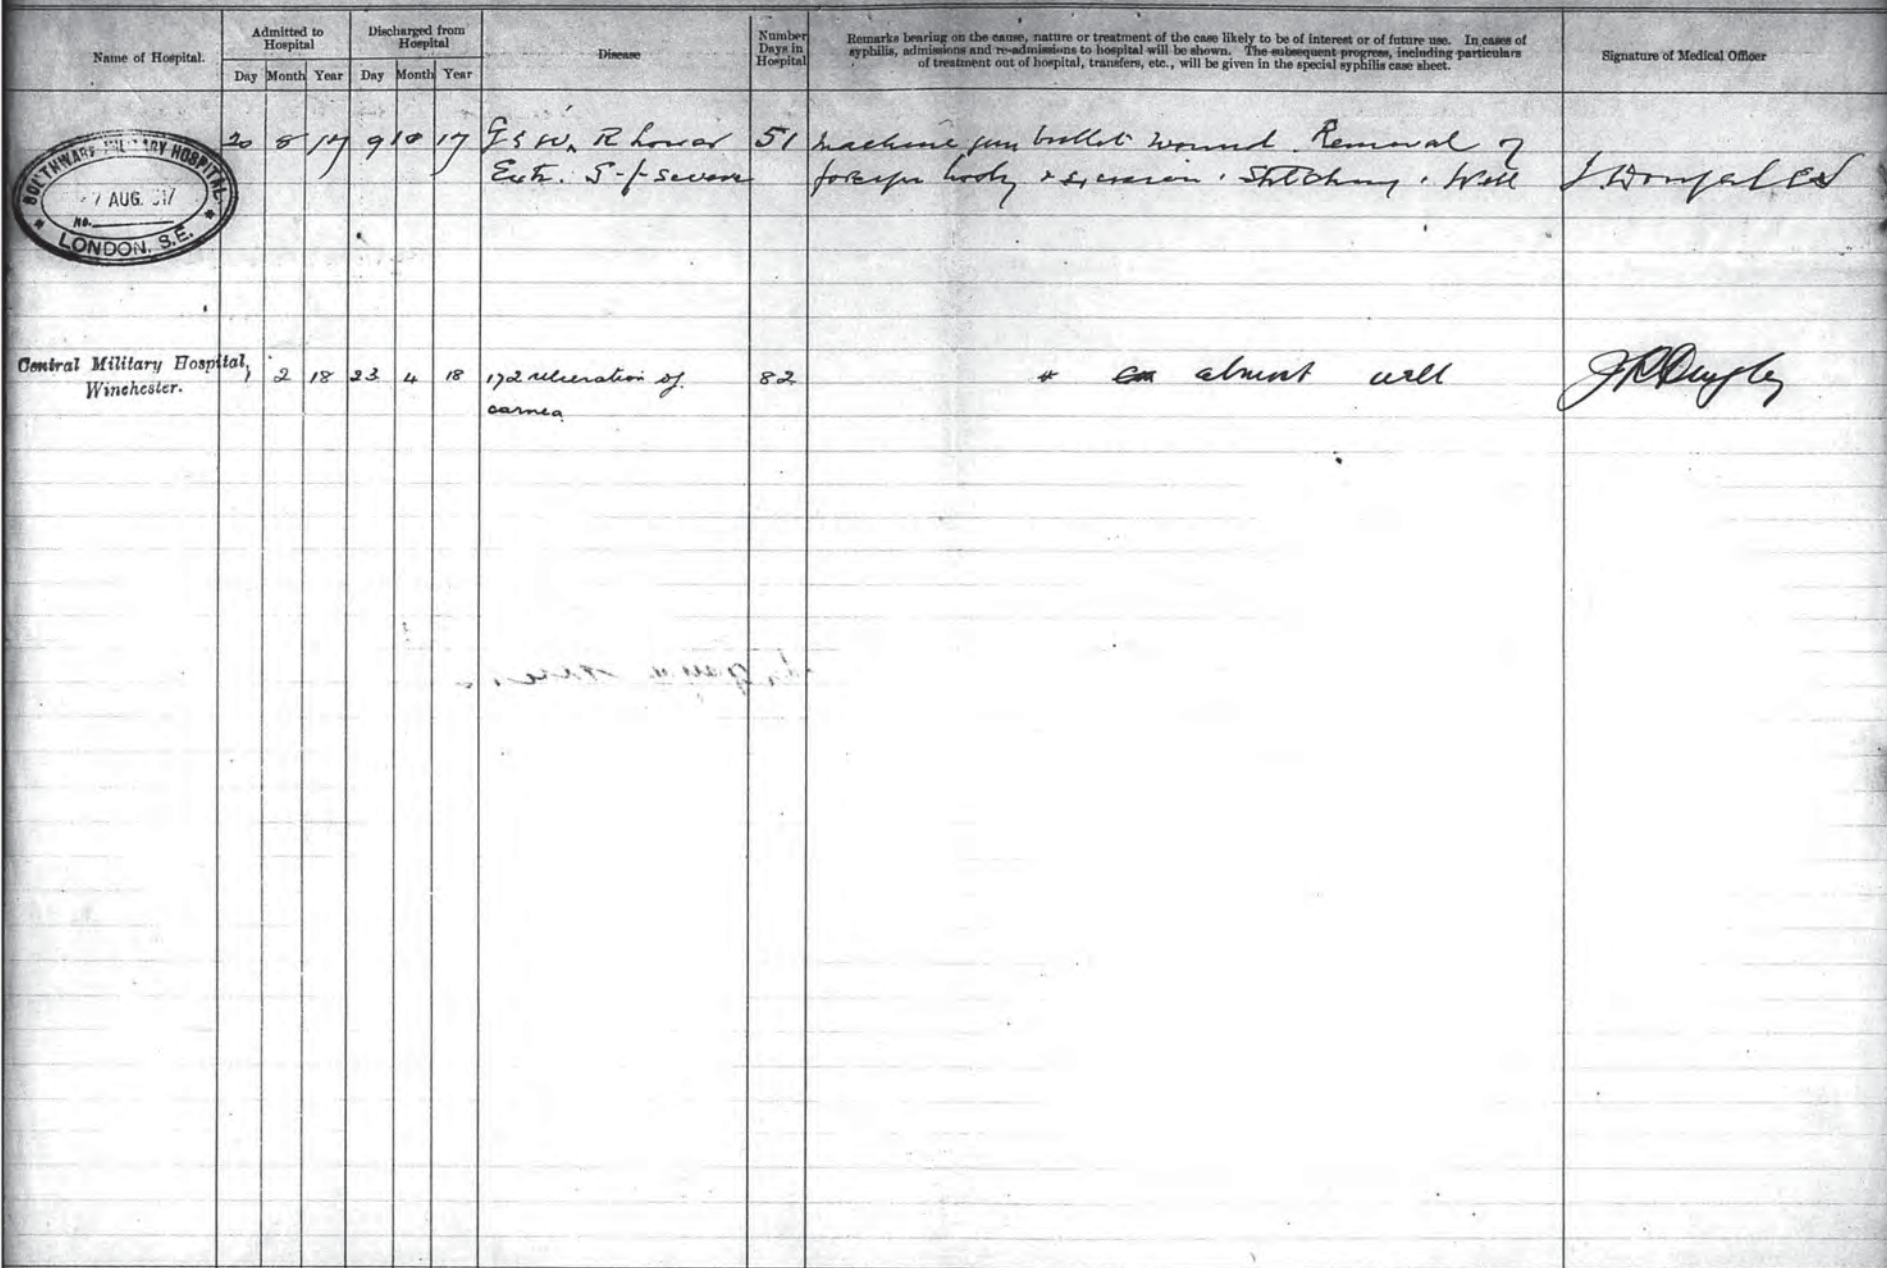 Name of Hospital.
Admitted to Hospital
Day Month Year
Discharged from Hospital
Day Month Year
Disease
Number Days in Hospital
Remarks bearing on the cause, nature or treatment of the case likely to be of interest or of future use. In cases of
syphilis, admissions and re-admissions to hospital will be shown. The subsequent progress, including particulars
of treatment out of hospital, transfers, etc., will be given in the special syphilis case sheet.
Signature of Medical Officer
SOUTHWARK MILITARY HOSPITAL
7 AUG. 17
No.
LONDON. S.E.
20 8 17 9 10 17 G S W. R Lower 51 Machine gun bullet wound. Removal of
Extr. severe foreign body & excision. Stitching. Well
Central Military Hospital,
Winchester.
1 2 18 23 4 18 172 ulceration of 82 almost well
cornea